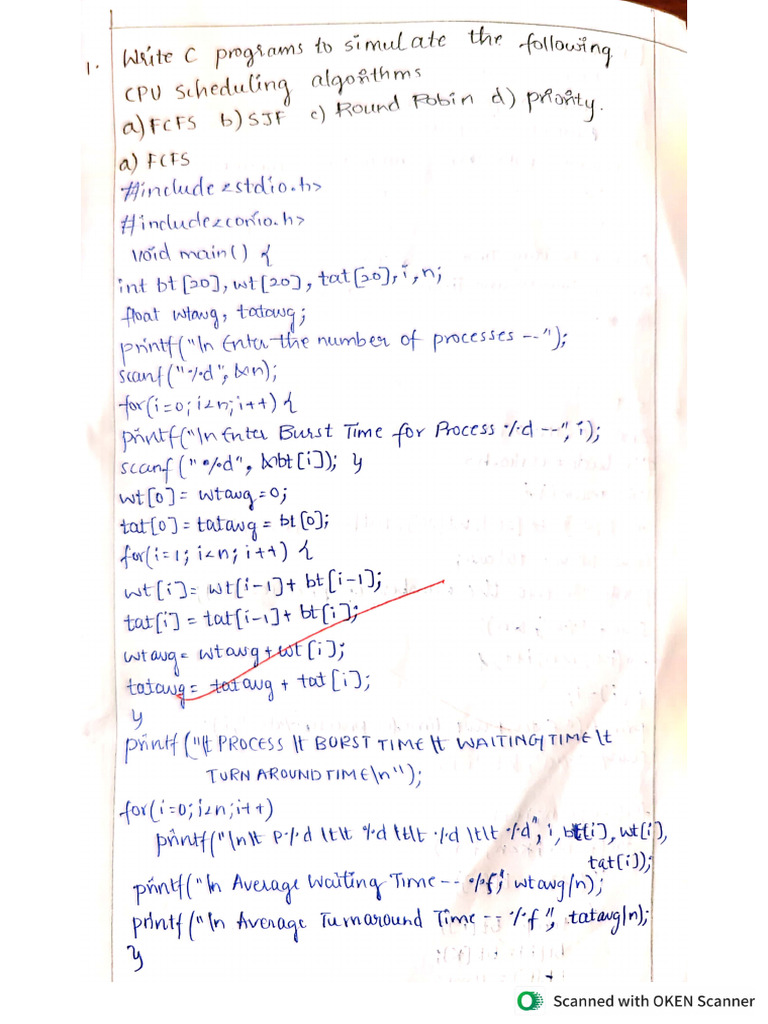 1. Write C programs to simulate the following
CPU Scheduling algorithms
a) FCFS b) SJF c) Round Robin d) priority.
a) FCFS
#include<stdio.h>
#include<conio.h>
void main() {
int bt[20], wt[20], tat[20], i, n;
float wtavg, tatavg;
printf("\n Enter the number of processes --");
scanf("%d", &n);
for(i=0; i<n; i++) {
printf("\n Enter Burst Time for Process %d --", i);
scanf("%d", &bt[i]); }
wt[0] = wtavg = 0;
tat[0] = tatavg = bt[0];
for(i=1; i<n; i++) {
wt[i] = wt[i-1] + bt[i-1];
tat[i] = tat[i-1] + bt[i];
wtavg = wtavg + wt[i];
tatavg = tatavg + tat[i];
}
printf("\t PROCESS \t BURST TIME \t WAITING TIME \t
TURN AROUND TIME \n");
for(i=0; i<n; i++)
printf("\n\t P%d \t\t %d \t\t %d \t\t %d", i, bt[i], wt[i],
tat[i]);
printf("\n Average Waiting Time -- %f", wtavg/n);
printf("\n Average Turnaround Time -- %f", tatavg/n);
}
Scanned with OKEN Scanner